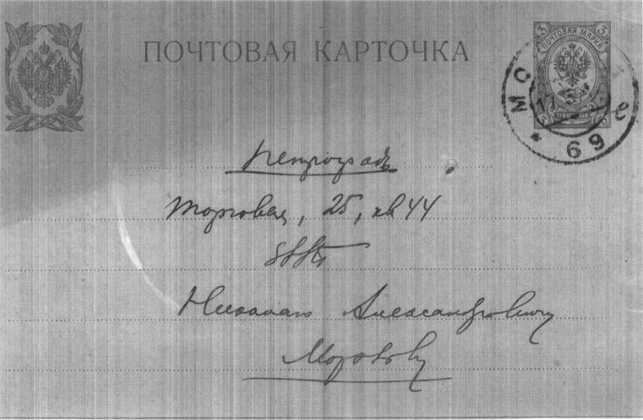 ПОЧТОВАЯ КАРТОЧКА
3 ПОЧТОВАЯ МАРКА 3
МОС
69 е
Петроградъ
Торговая, 25, кв 44
Николаю Александровичу
Морозову